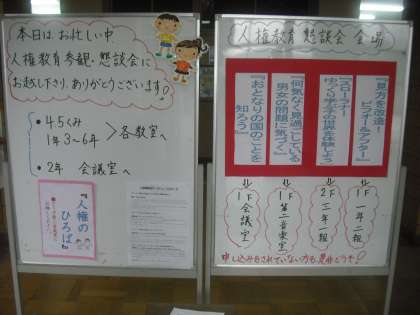 本日は、お忙しい中
人権教育参観・懇談会に
お越し下さり、ありがとうございます!
・4.5くみ
1年 3~6年 > 各教室へ
・2年 会議室へ
『人権の
ひろば』
人権教育 懇談会 会場
『見方を改造!
ビフォー&アフター』
『スローラナー
ゆっくり学ぶ子の世界を体験しよう』
『何気なく見過ごしている
男女の問題に気づく』
『おとなりの国のことを
知ろう』
1F 一年二組
2F 二年一組
1F 第二音楽室
1F 会議室
申し込みをされていない方も是非どうぞ!